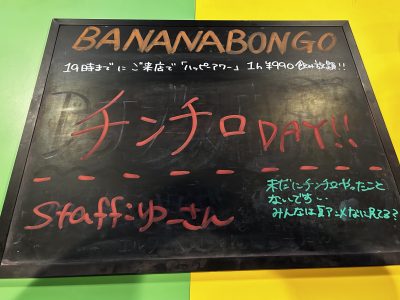 BANANABONGO
19時までにご来店で「ハッピアワー」1h ¥990 飲み放題!!
チンチロ DAY!!
Staff:ゆーさん
未だにチンチロやったこと
ないです…
みんなは夏アニメなに見てる?